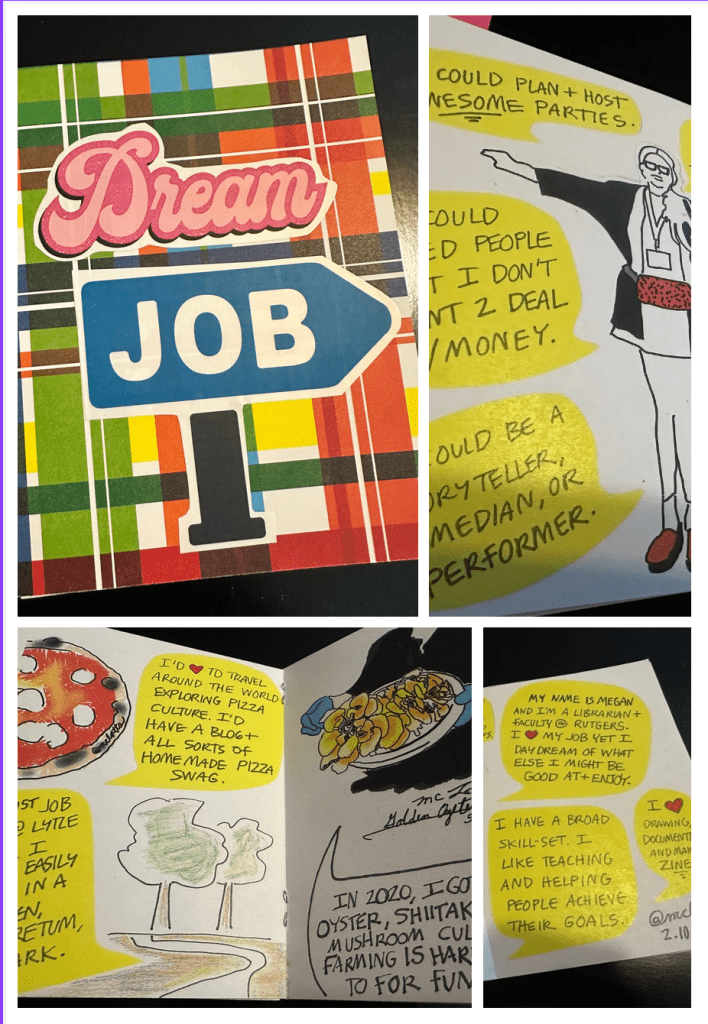 Dream
JOB
COULD PLAN + HOST
AWESOME PARTIES.
PEOPLE
I DON'T
2 DEAL
MONEY.
BE A
OR
PERFORMER.
I'D ❤ TO TRAVEL
AROUND THE WORLD
EXPLORING PIZZA
CULTURE. I'D
HAVE A BLOG +
ALL SORTS OF
HOMEMADE PIZZA
SWAG.
JOB
LYTLE
I
EASILY
IN A
Golden
IN 2020, I GO
OYSTER, SHIITAK
MUSHROOM CUL
FARMING IS HAR
TO FOR FUN
MY NAME IS MEGAN
AND I'M A LIBRARIAN +
FACULTY @ RUTGERS.
I ❤ MY JOB YET I
DAYDREAM OF WHAT
ELSE I MIGHT BE
GOOD AT + ENJOY.
I HAVE A BROAD
SKILL-SET. I
LIKE TEACHING
AND HELPING
PEOPLE ACHIEVE
THEIR GOALS.
I ❤
DRAWING,
DOCUMENT
AND MAK
ZINE
2.10